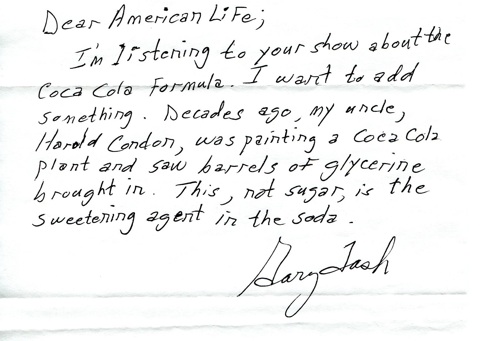 Dear American Life;
I'm listening to your show about the
Coca Cola Formula. I want to add
something. Decades ago, my uncle,
Harold Condon, was painting a Coca Cola
plant and saw barrels of glycerine
brought in. This, not sugar, is the
sweetening agent in the soda.
Gary Tash